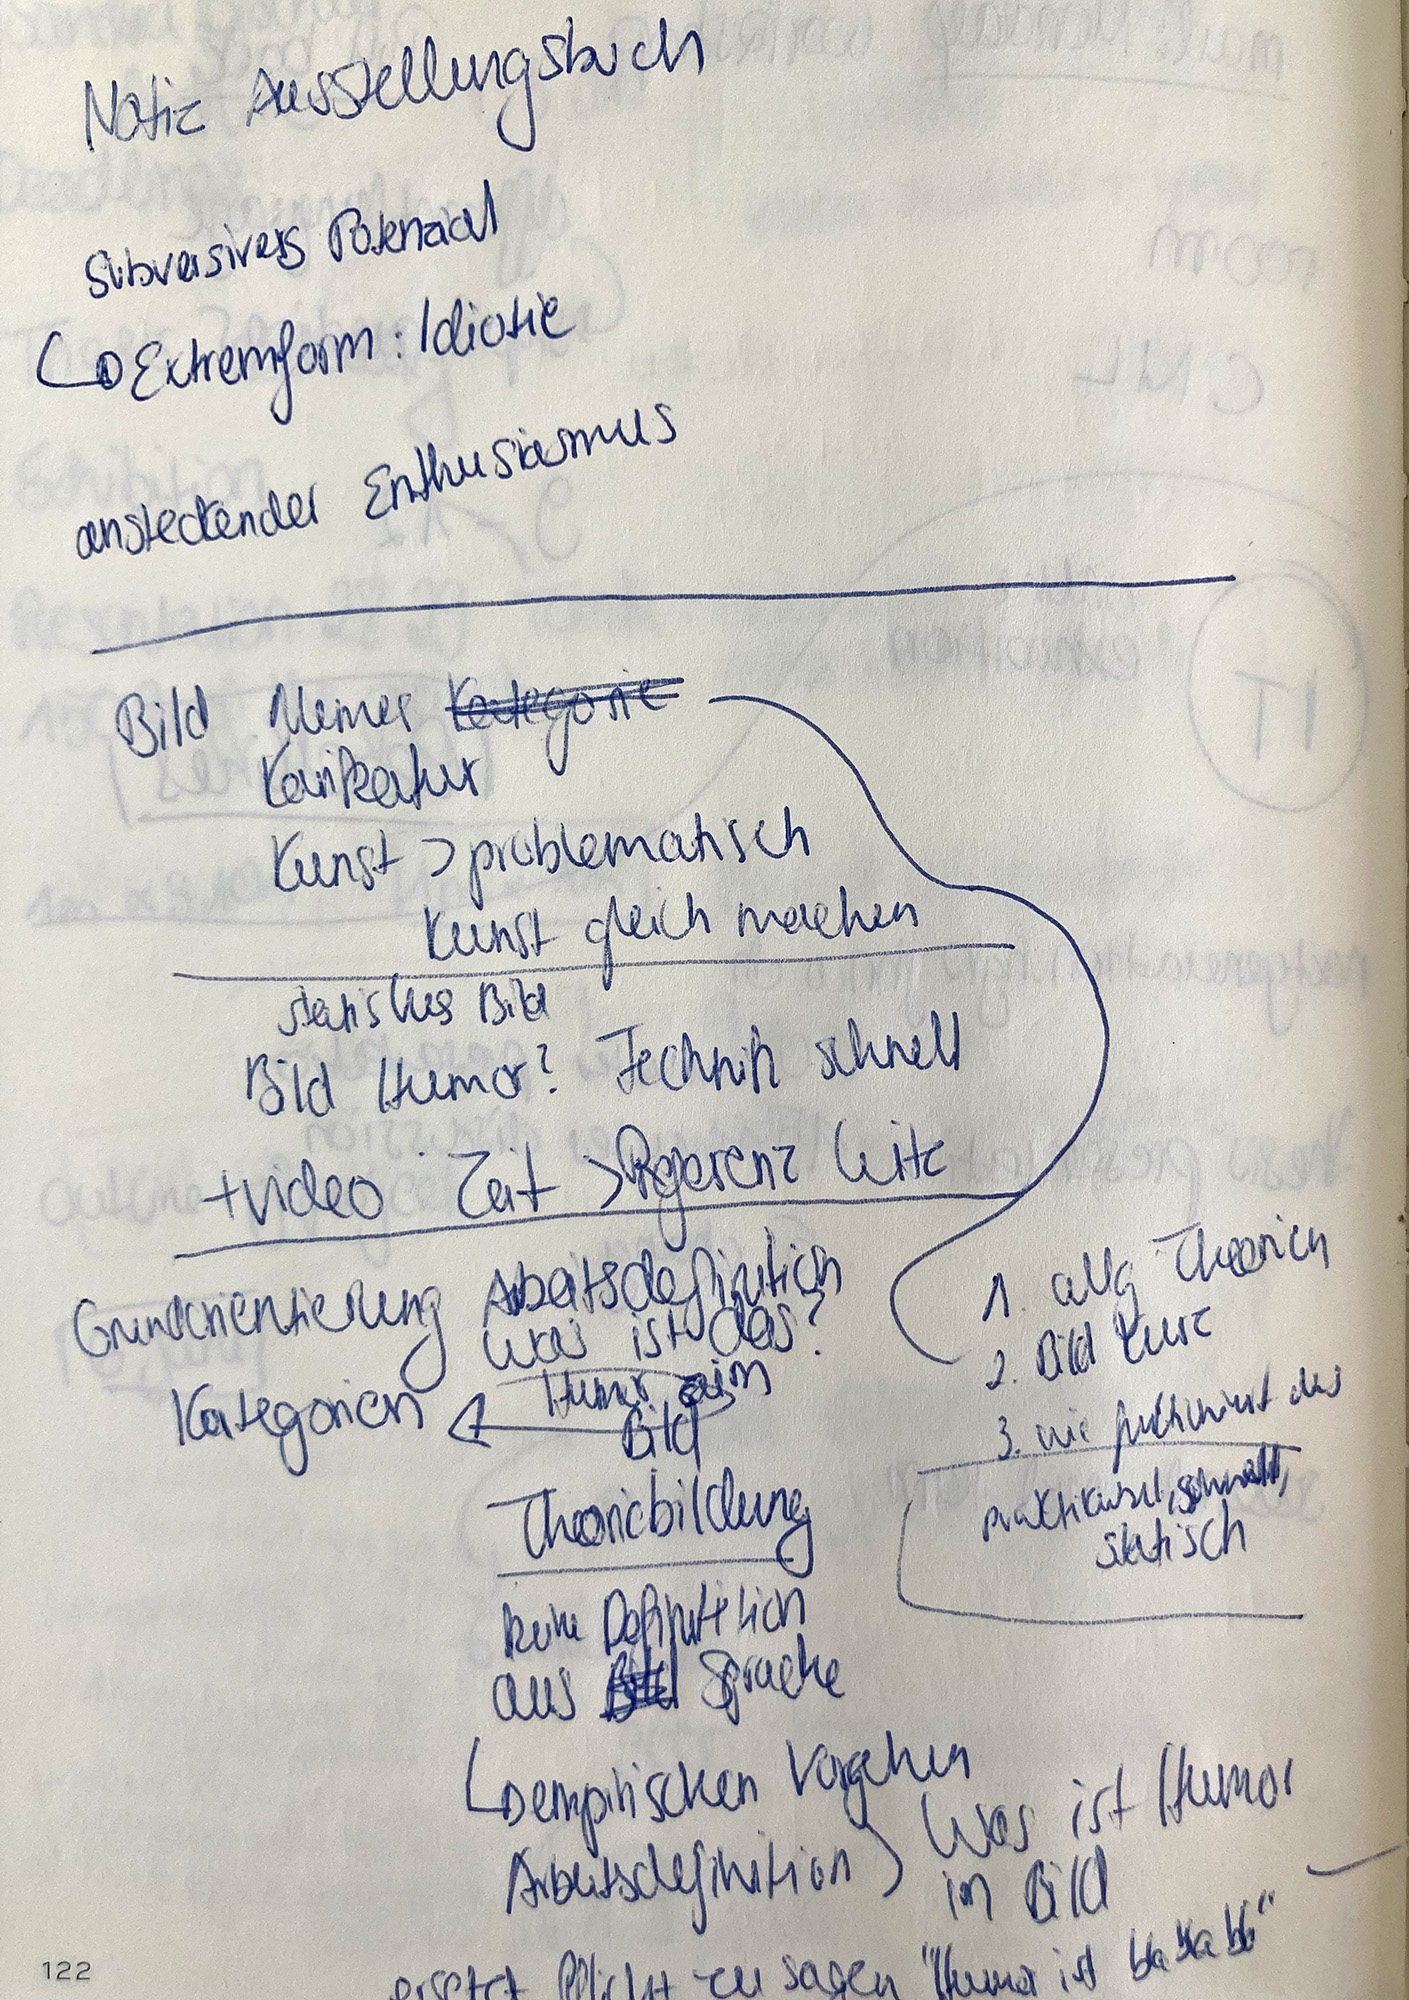 Notiz Ausstellungsbuch
Subversives Potenzial
Extremform: Idiotie
ansteckender Enthusiasmus
Bild Memes Kategorie
Karikatur
Kunst > problematisch
Kunst gleich machen
statisches Bild
Bild Humor? Technik schnell
+ video Zeit > Referenz Witz
Grundorientierung Arbeitsdefinition
was ist das?
Humor im
Kategorien
Bild
Theoriebildung
keine Definition
aus Bild Sprache
empirischen Vorgehen
Arbeitsdefinition
1. allg Theorien
2. Bild kurz
3. wie funktioniert das
praktikabel, schnell,
statisch
Was ist Humor
im Bild
ersetzt Pflicht zu sagen "Humor ist bla bla bla"
122